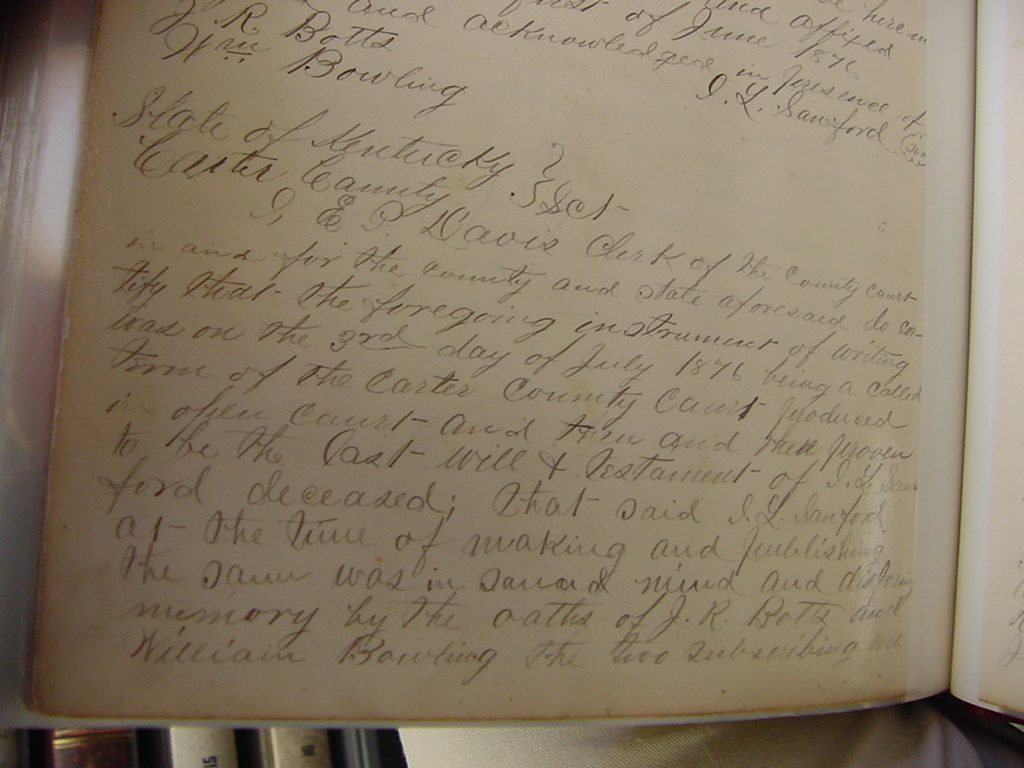 hereun
and affixed
first of June 1876
and acknowledged in presence of
J. R. Botts S. L. Sanford
Wm Bowling
State of Kentucky
Carter County Sct
I, G. W. Davis Clerk of the County Court
in and for the county and state aforesaid do cer-
tify that the foregoing instrument of writing
was on the 3rd day of July 1876 being a called
term of the Carter County Court produced
in open Court and then and there proven
to be the last will & testament of S. L. San
ford deceased; that said S. L. Sanford
at the time of making and publishing
the same was in sound mind and
memory by the oaths of J. R. Botts and
William Bowling the two subscribing
15
16